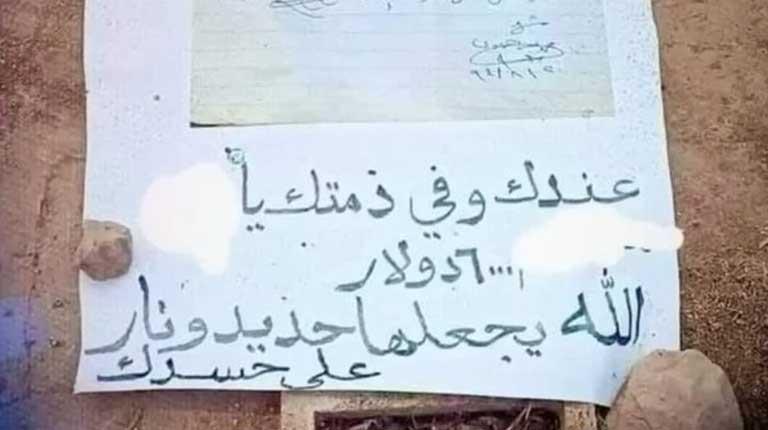 عندك وفي ذمتك يا
٦٠٠٠ دولار
الله يجعلها حديد ونار
على حسدك